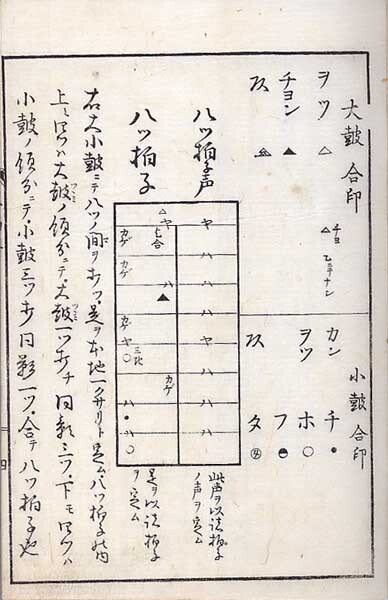 大鼓合印
ヲツ △
チヨン ▲
チヨ
乙ニテナシ
小鼓合印
カン チ ●
ヲツ ホ ○
フ
タ
八ツ拍子声
ヤ ハ ハ ハ ヤ ハ ハ ハ
此声ヲ以謡拍子
ノ声ヲ定ム
八ツ拍子
△ヤ ハ▲ カケ
七合 三地
カケ カケ カケ ヤ○ ハ● ハ○
是ヲ以謡拍子
ヲ定ム
右大小鼓ニテ八ツノ間ヲ打ツ是ヲ本地一クサリト定ム八ツ拍子ノ内
上ミ四ツハ大鼓ノ領分ニテ大鼓一ツ打チ同影三ツ・下モ四ツハ
小鼓ノ領分ニテ・小鼓三ツ打同影一ツ・合テ八ツ拍子也
四